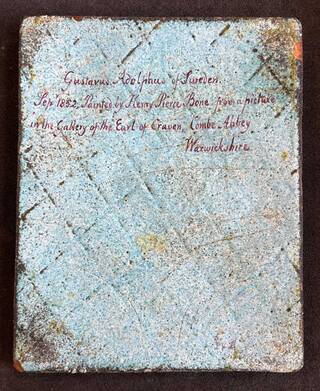 Gustavus Adolphus of Sweden.
Sep 1852. Painted by Henry Pierce Bone from a picture
in the Gallery of the Earl of Craven, Combe Abbey
Warwickshire